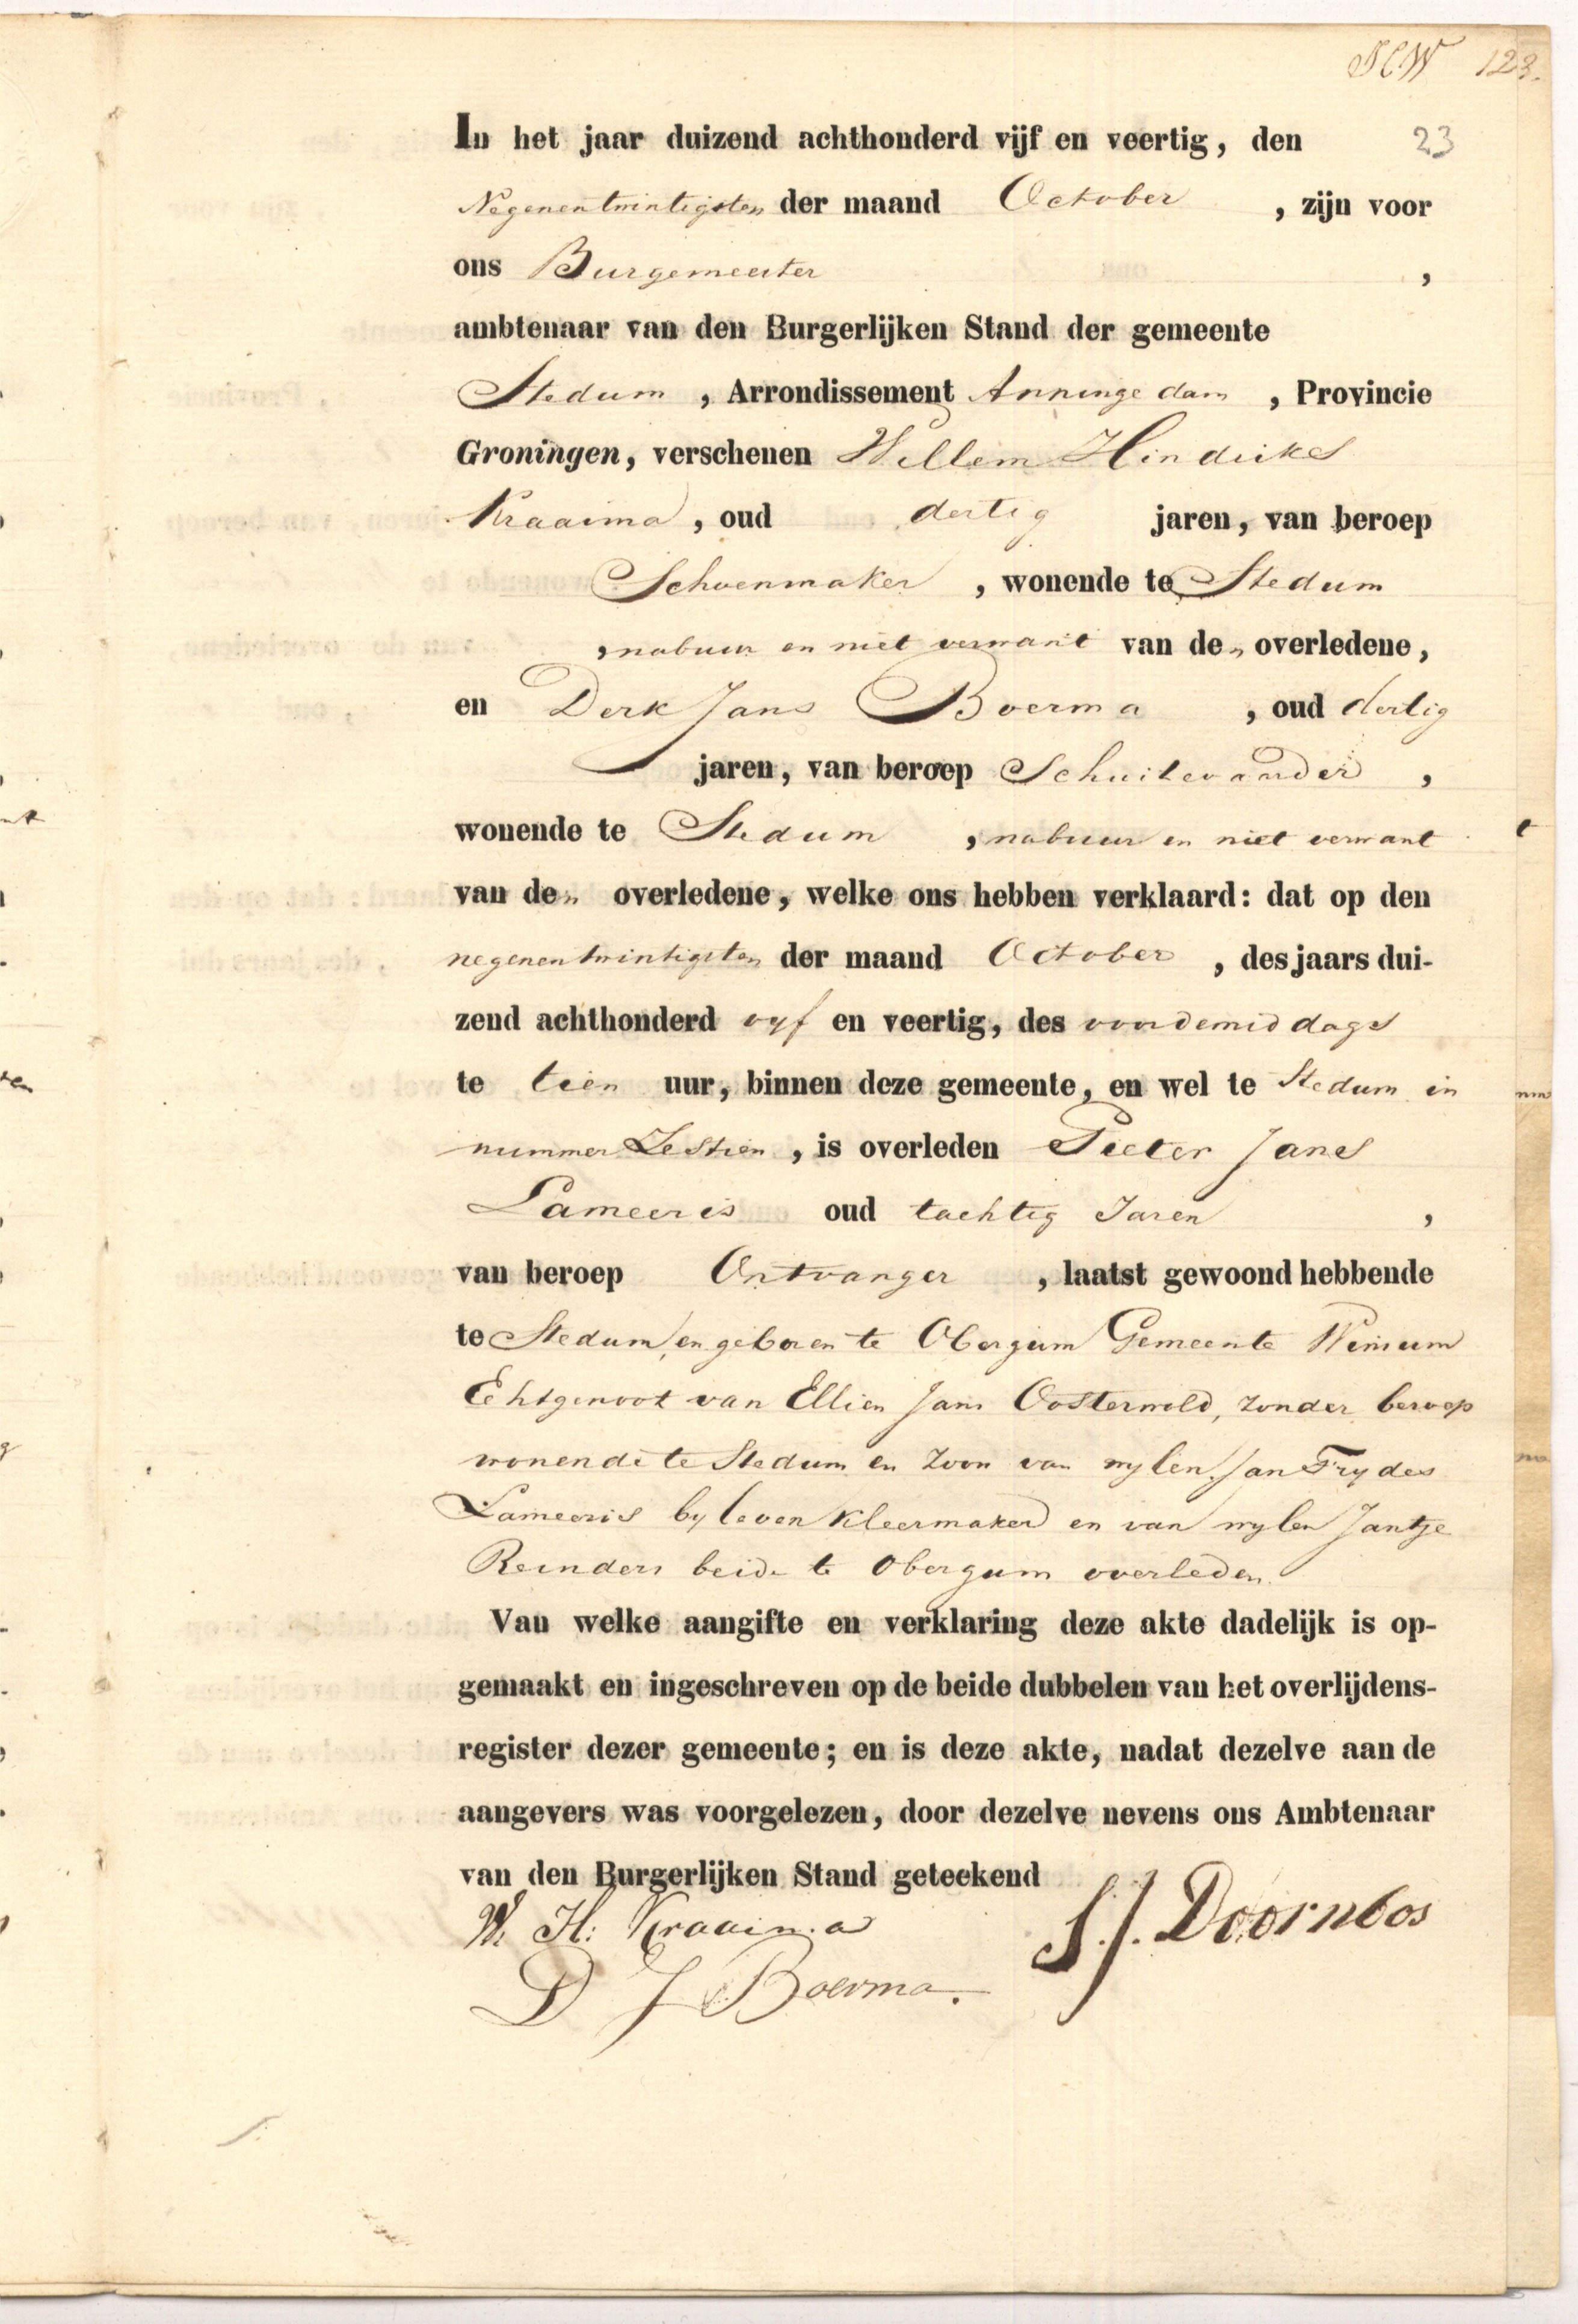 123.
23
In het jaar duizend achthonderd vijf en veertig, den
Negenentwintigsten der maand October , zijn voor
ons Burgemeester ,
ambtenaar van den Burgerlijken Stand der gemeente
Stedum , Arrondissement Appingedam , Provincie
Groningen, verschenen Willem Hindriks
Kraaima , oud dertig jaren, van beroep
Schoenmaker , wonende te Stedum
, nabuur en niet verwant van den overledene,
en Derk Jans Boerma , oud dertig
jaren, van beroep Schuitevaarder ,
wonende te Stedum , nabuur en niet verwant
van den overledene, welke ons hebben verklaard: dat op den
negenentwintigsten der maand October , des jaars dui-
zend achthonderd vyf en veertig, des voordemiddags
te tien uur, binnen deze gemeente, en wel te Stedum in
nummer Zestien , is overleden Pieter Jans
Lameeris oud tachtig Jaren ,
van beroep Ontvanger , laatst gewoond hebbende
te Stedum, en geboren te Obergum Gemeente Winsum
Echtgenoot van Ellien Jans Oosterwold, zonder beroep
wonende te Stedum en Zoon van wylen Jan Frydes
Lameeris by leven Kleermaker en van wylen Jantje
Reinders beide te Obergum overleden.
Van welke aangifte en verklaring deze akte dadelijk is op-
gemaakt en ingeschreven op de beide dubbelen van het overlijdens-
register dezer gemeente; en is deze akte, nadat dezelve aan de
aangevers was voorgelezen, door dezelve nevens ons Ambtenaar
van den Burgerlijken Stand geteekend
W. H: Kraaima S. J. Doornbos
D J Boerma.